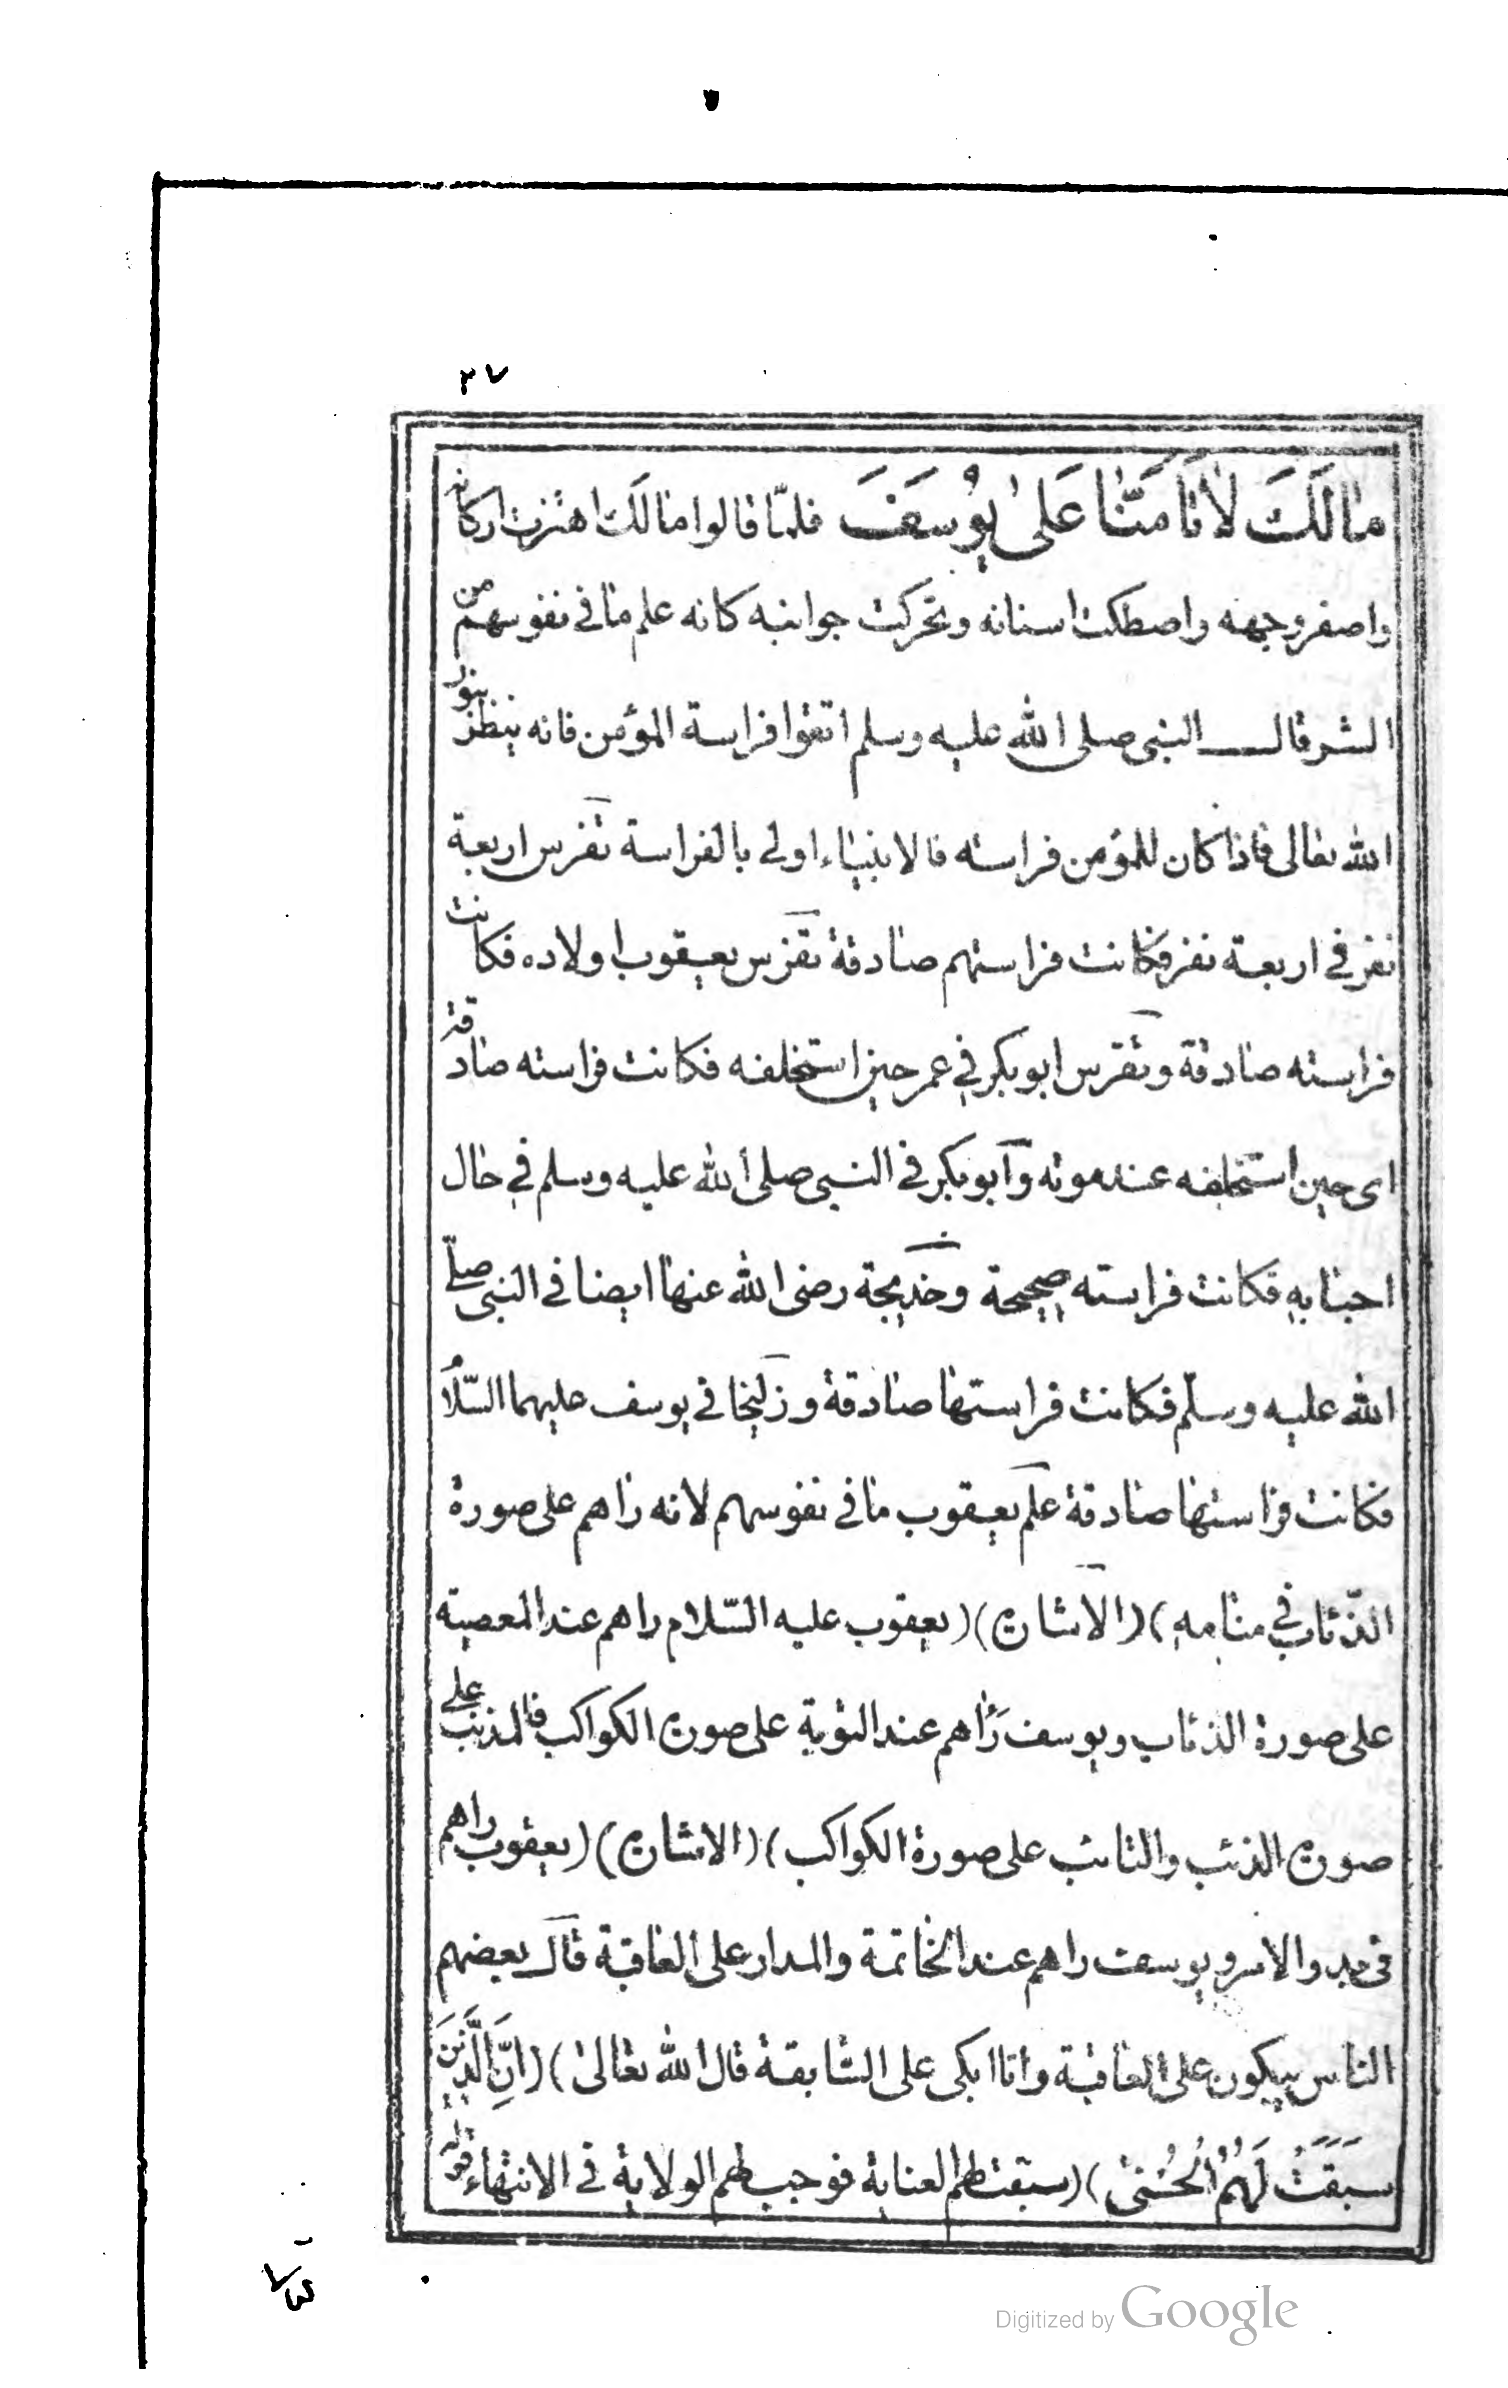 ٣٧
مَالَكَ لَا تَأْمَنَّا عَلٰى يُوسُفَ فلمّا قالوا مالك اهتزت اركانه
واصفر وجهه واصطكت اسنانه وتحركت جوانبه كانه علم ما فى نفوسهم من
الشر قال النبى صلى الله عليه وسلم اتقوا فراسة المؤمن فانه ينظر بنور
الله تعالى فاذا كان للمؤمن فراسته فالانبياء اولى بالفراسة تفرس اربعة
نفر فى اربعة نفر فكانت فراستهم صادقة تفرس يعقوب اولاده فكانت
فراسته صادقة وتفرس ابو بكر فى عمر حين استخلفه فكانت فراسته صادقة
اى حين استخلفه عند موته وابو بكر فى النبى صلى الله عليه وسلم فى حال
احبابه فكانت فراسته صحيحة وخديجة رضى الله عنها ايضا فى النبى صلى
الله عليه وسلّم فكانت فراستها صادقة وزليخا فى يوسف عليهما السّلام
فكانت فراستها صادقة علم يعقوب ما فى نفوسهم لانه راهم على صورة
الذّئاب فى منامه) (الاشارة) (يعقوب عليه السّلام راهم عند المعصية
على صورة الذئاب ويوسف رأهم عند التوبة على صورة الكواكب فالمذنب على
صورة الذئب والتائب على صورة الكواكب) (الاشارة) (يعقوب راهم
فى بدو الامر ويوسف راهم عند الخاتمة والمدار على العاقبة قال بعضهم
الناس يبكون على العاقبة وانا ابكى على السّابقة قال الله تعالى) (اِنَّ الَّذِينَ
سَبَقَتْ لَهُمْ الْحُسْنىٰ) (سبقت لهم العناية فوجب لهم الولاية فى الانتهاء قوله
Digitized by Google